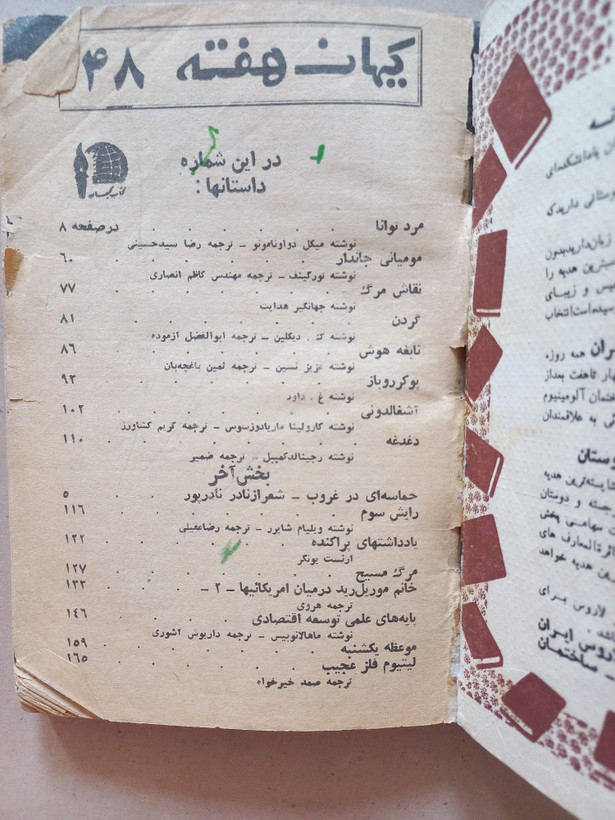 کیهان هفته ۴۸
در این شماره
داستانها :
مرد توانا . . . . . . درصفحه ۸
نوشته میگل دواونامونو ــ ترجمه رضا سیدحسینی
مومیائی جاندار . . . . . . ۶۰
نوشته تورگینف ــ ترجمه مهندس کاظم انصاری
نقاش مرگ . . . . . . ۷۷
نوشته جهانگیر هدایت
گردن . . . . . . ۸۱
نوشته ک . دیکلین ــ ترجمه ابوالفضل آزموده
نابغه هوش . . . . . . ۸۶
نوشته عزیز نسین ــ ترجمه ثمین باغچه‌بان
پوکرروباز . . . . . . ۹۳
نوشته غ . داود
آشغالدونی . . . . . . ۱۰۲
نوشته کارولینا ماریادوزسوس ــ ترجمه کریم کشاورز
دغدغه . . . . . . ۱۱۰
نوشته رجینالدکمپبل ــ ترجمه ضمیر
بخش آخر
حماسه‌ای در غروب ــ شعرازنادر نادرپور ۵
رایش سوم . . . . . . ۱۱۶
نوشته ویلیام شایرر ــ ترجمه رضاعقیلی
یادداشتهای پراکنده . . . . . ۱۲۲
ارنست یونگر
مرگ مسیح . . . . . . ۱۲۷
خانم موریل‌رید درمیان امریکائیها ــ ۲ ــ . . . ۱۳۳
ترجمه هروی
پایه‌های علمی توسعه اقتصادی . . . . ۱۴۶
نوشته ماهالانوبیس ــ ترجمه داریوش آشوری
موعظه یکشنبه . . . . . . ۱۵۹
لیتیوم فلز عجیب . . . . . . ۱۶۵
ترجمه صمد خیرخواه
زبان‌دارید،بدون
هدیه را
و زیبای
انتخاب
همه روزه
آلومینیوم
به علاقمندان
هدیه
و دوستان
سهامی پخش
المعارف های
هدیه خواهد
لاروس برای
لاروس ایران
ساختمان